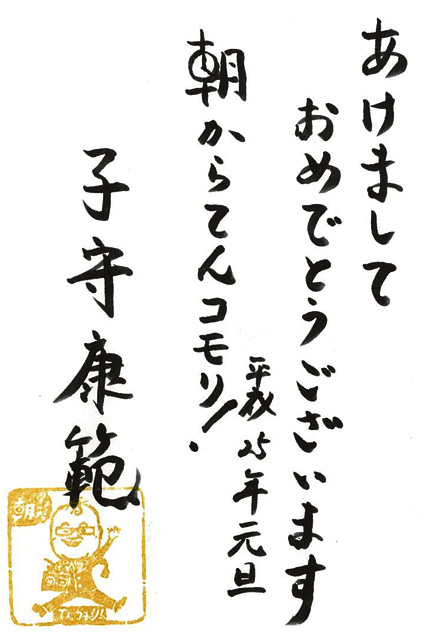 あけまして
おめでとうございます
平成25年元旦
朝からてんコモリ!
子守康範
朝